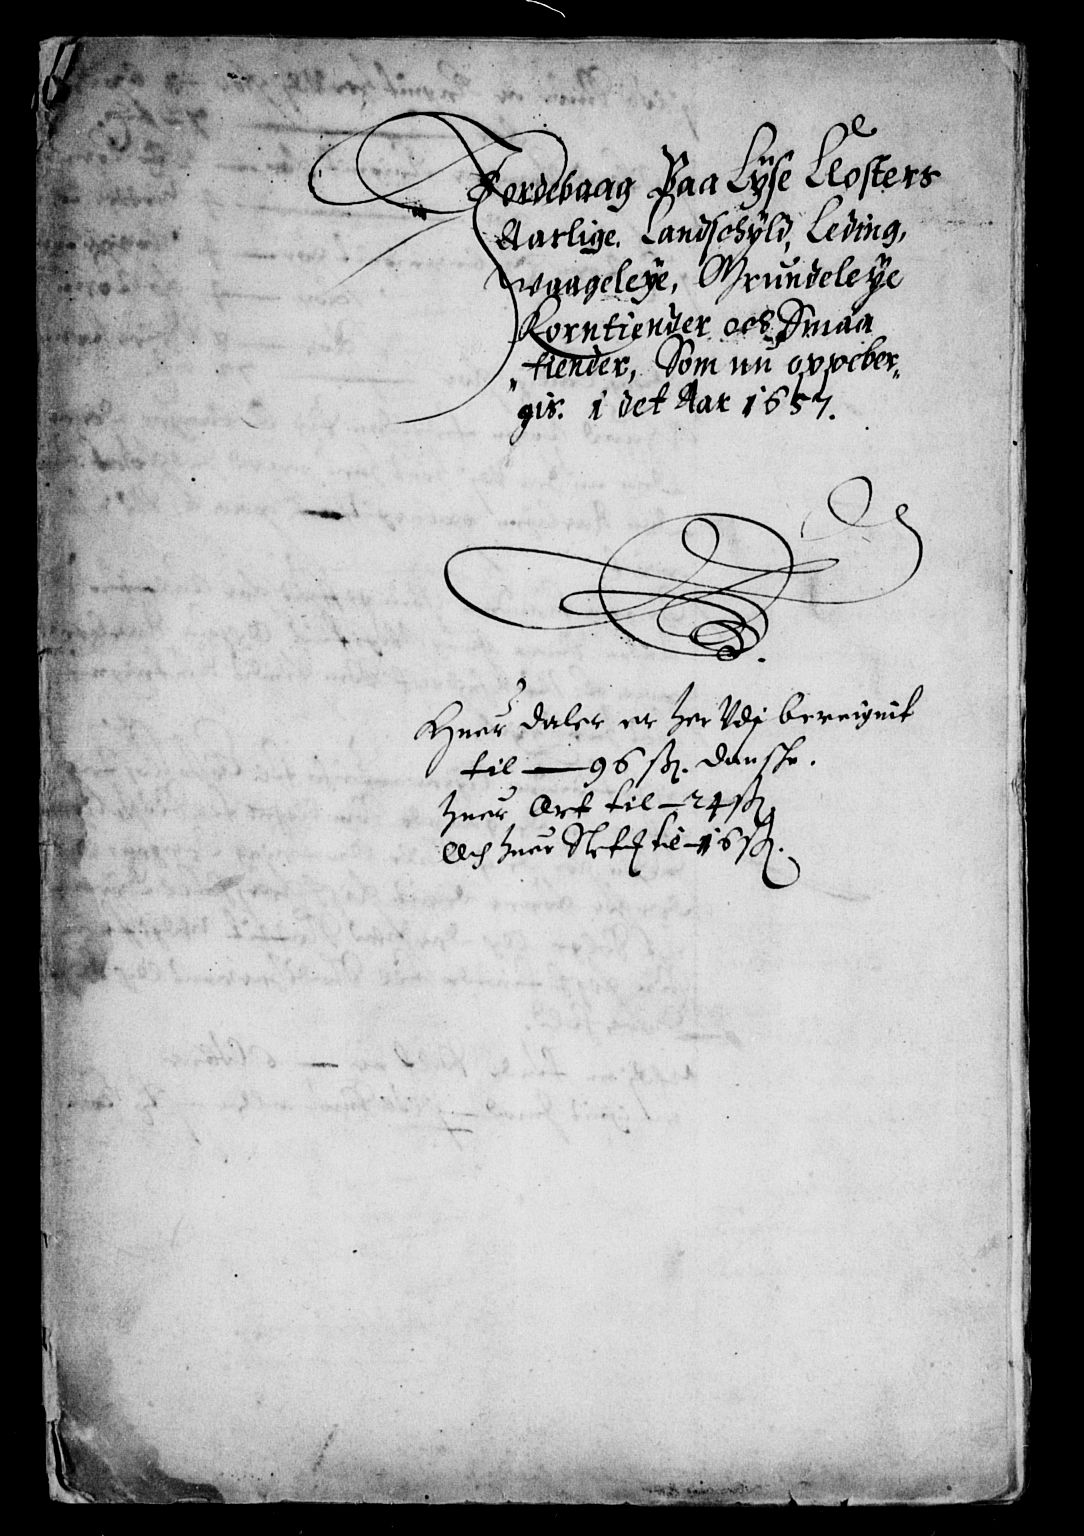 Jordebaag Paa Lÿse Closters
Aarlige. Landschÿld, Leding,
waageleÿe, Grundeleÿe
Korntiender och Smaa
tiender, Som nu oppeber„
„gis. i det Aar 1657.
Huer daler er her Udj bereignit
til — 96 sk. danske.
huer Ort til — 24 sk
Och huer til 16 sk.